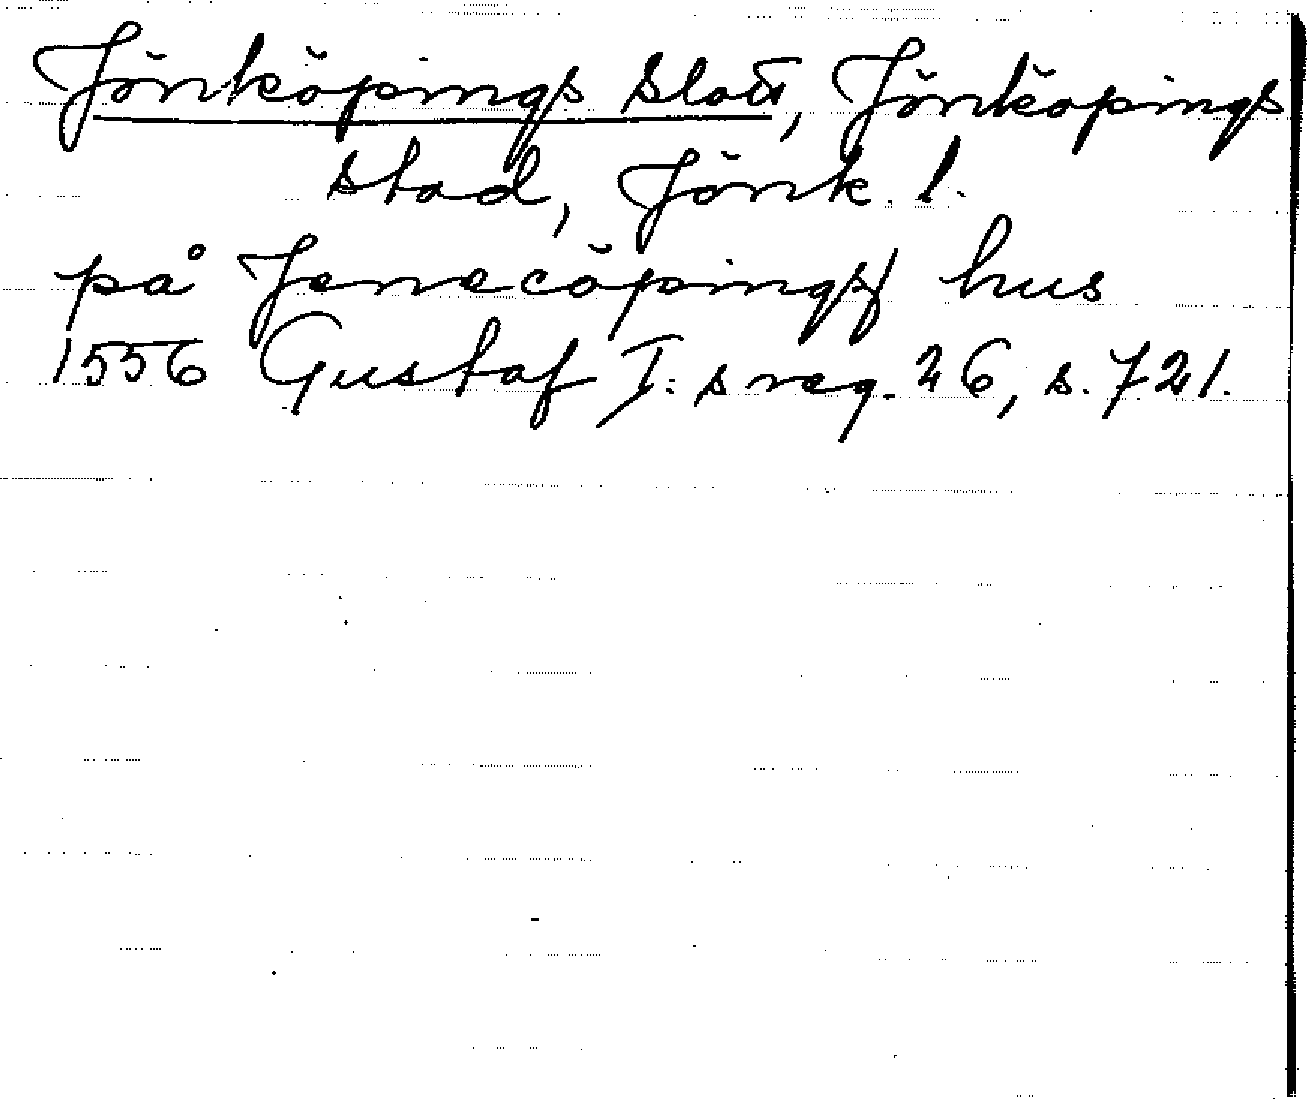 Jönköpings slott, Jönköpings
stad, Jönk. l.
på Jenecöpings hus
1556 Gustaf I:s reg. 26, s. 721.